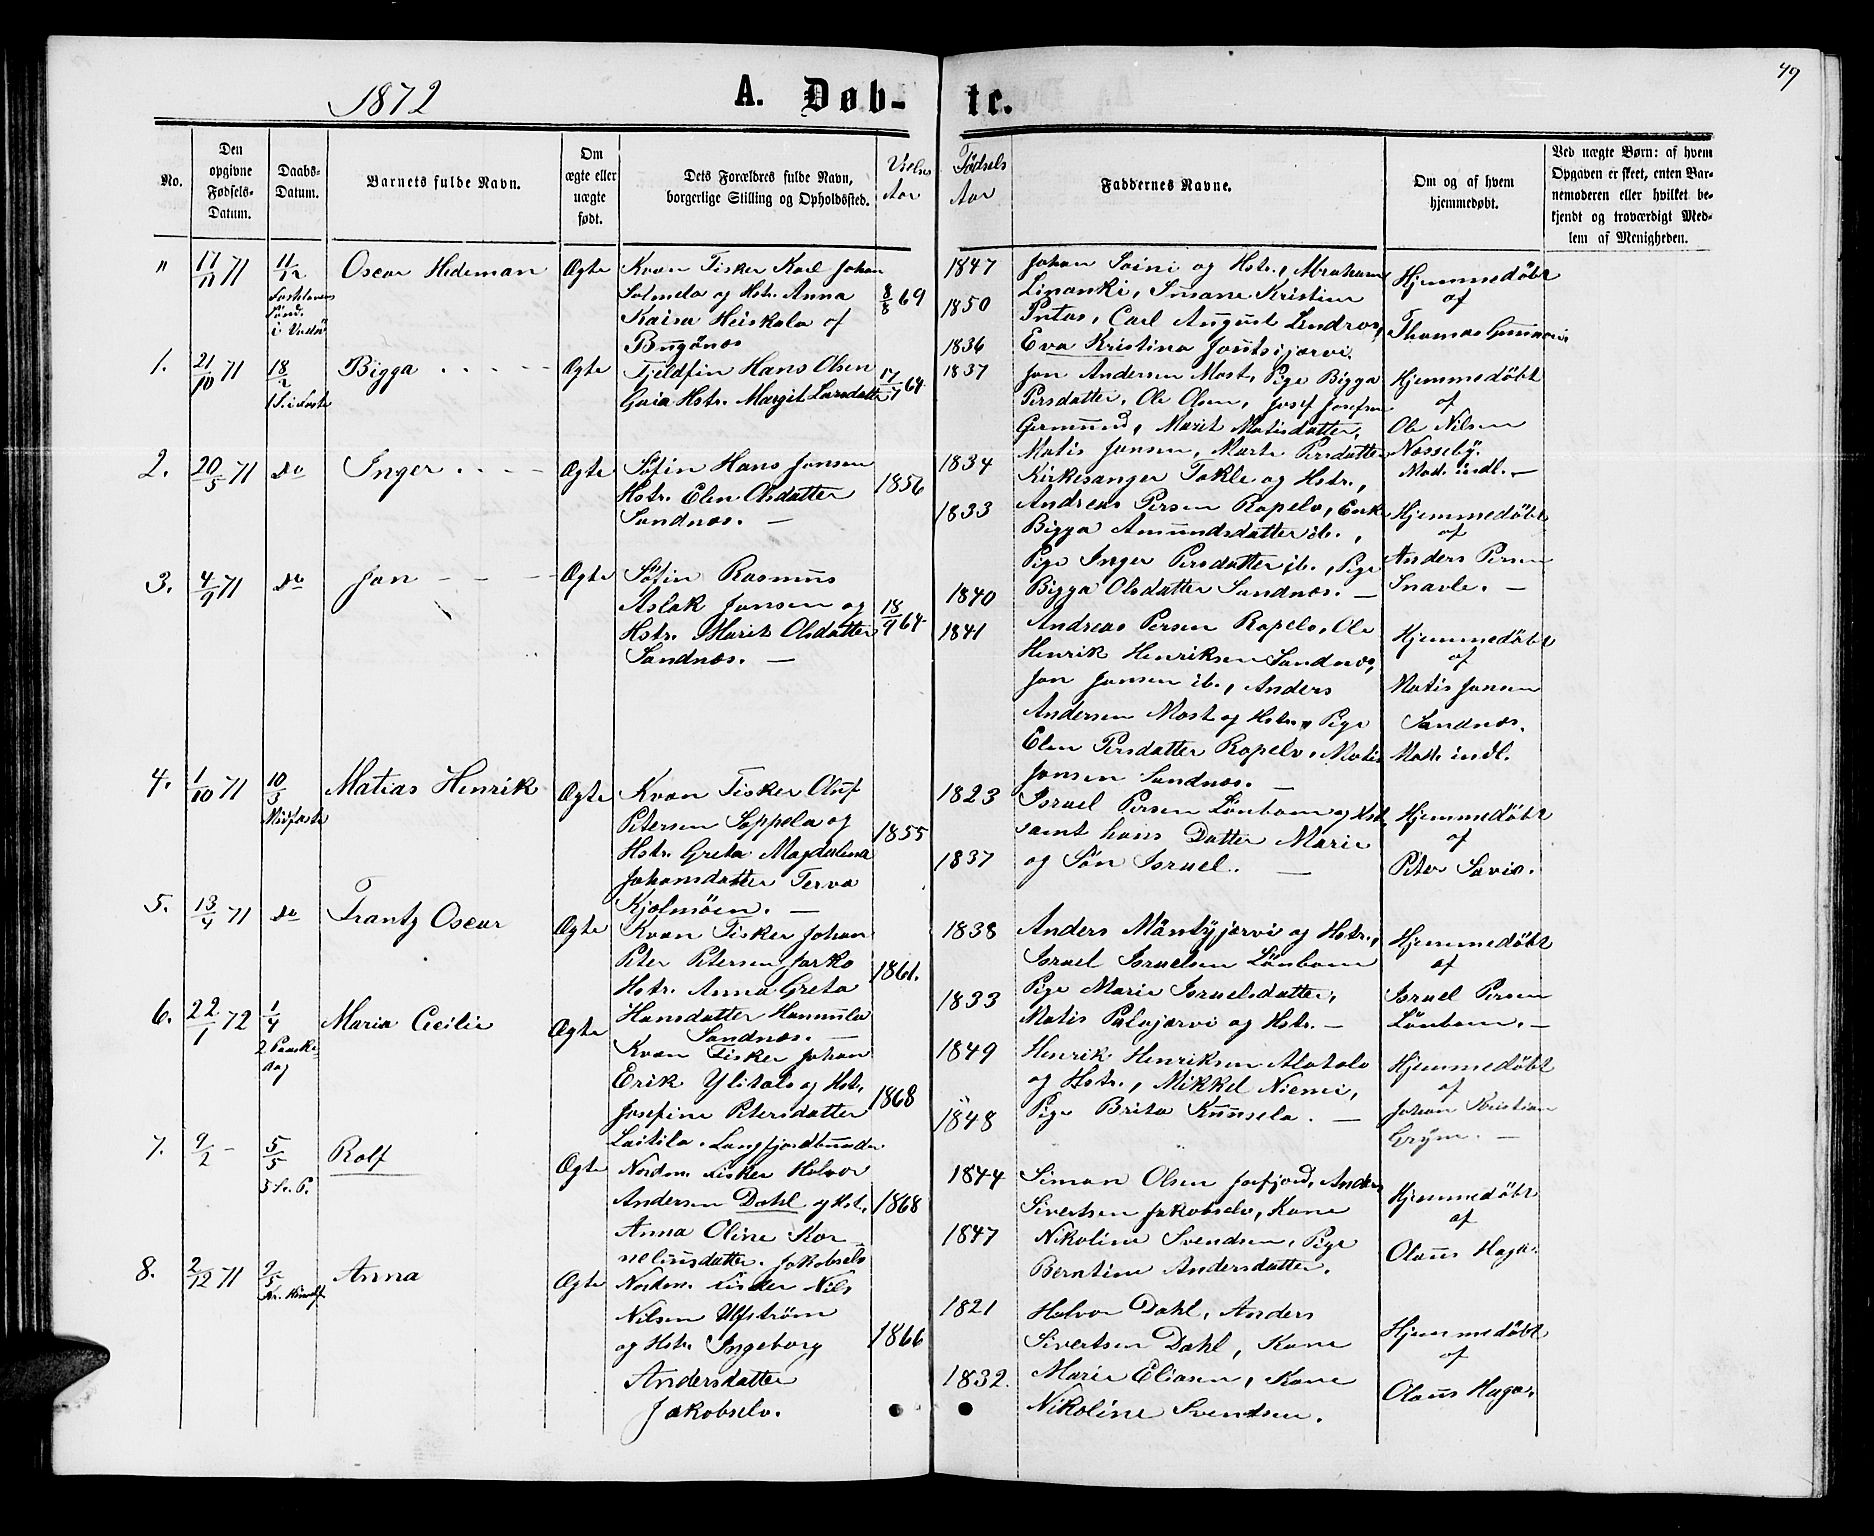 49
1872
A. Døb-
te.
No.
Den opgivne Fødsels-Datum.
Daabs-Datum.
Barnets fulde Navn.
Om ægte eller uægte født.
Dets Forældres fulde Navn, borgerlige Stilling og Opholdssted.
Vielses Aar
Fødsels Aar
Faddernes Navne.
Om og af hvem hjemmedøbt.
Ved uægte Børn: af hvem Opgaven er skeet, enten Barnemoderen eller hvilket bekjendt og troværdigt Medlem af Menigheden.
" 17/11 71 11/12
Sønd.
i Vadsø
Oscar Hedeman
Ægte
Kvæn Fisker Karl Johan
og Hstr. Anna
Kaisa Heiskala af
Bugønes
8/8 69
1847
1850
Johan Soini og Hstr., Abraham
Linanki, Kristine
Carl August Lindros,
Eva Kristina
Hjemmedøbt
af
Thomas
1. 21/10 71 18/2
1 S. i Faste
Bigga
Ægte
Fjeldfin Hans Olsen
Gaia Hstr. Margit Larsdatter
17/7 64
1836
1837
Jon Andersen Most, Pige Bigga
Persdatter, Ole Olsen, Josef Josefsen
Germund, Marit Matisdatter,
Hjemmedøbt
af
Ole Nilsen
Næsseby.
Mod. indl. —
2. 20/5 71 do
Inger
Ægte
Søfin Hans Jonsen
Hstr. Elen Olsdatter
Sandnæs. —
1856
1834
1833
Matis Jonsen, Marte Persdatter
Kirkesanger Takle og Hstr.,
Andreas Persen Ropelv, Enke
Bigga Amundsdatter ib.,
Pige Inger Persdatter ib., Pige
Bigga Olsdatter Sandnæs. —
Hjemmedøbt
af
Anders Persen
3. 4/9 71 do
Jon
Ægte
Søfin Rasmus
Aslak Jonsen og
Hstr. Marit Olsdatter
Sandnæs. —
18/9 64
1840
1841
Andreas Persen Ropelv, Ole
Henrik Henriksen Sandnæs,
Jon Jonsen ib., Anders
Andersen Most og Hstr., Pige
Elen Persdatter Ropelv, Matis
Jonsen Sandnæs. —
Hjemmedøbt
af
Matis Jonsen
Sandnæs.
Mod. indl.
4. 1/10 71 10/3
Midfaste
Matias Henrik
Ægte
Kvæn Fisker Oluf
Petersen Soppela og
Hstr. Greta Magdalena
Johansdatter Terva
Kjelmøen. —
1855
1823
1837
Israel Persen Lönbom og Hstr.
samt hans Datter Marie
og Søn Israel. —
Hjemmedøbt
af
Peter Savio.
5. 13/4 71 do
Frantz Oscar
Ægte
Kvæn Fisker Johan
Peter Petersen Jarko
Hstr. Anna Greta
Hansdatter Hannula
Sandnæs. —
1861.
1838
1833
Anders Mäntyjarvi og Hstr.,
Israel Israelsen Lönbom
Pige Marie Israelsdatter,
Matis Palojarvi og Hstr. —
Hjemmedøbt
af
Israel Persen
Lönbom. —
6. 22/1 72 1/4
2 Paaske
dag
Maria Cecilie
Ægte
Kvæn Fisker Johan
Erik Ylitalo og Hstr.
Josefine Petersdatter
Laitila. Langfjordbunden
1868
1849
1848
Henrik Henriksen Alatalo
og Hstr., Mikkel Niemi,
Pige Brita Kunsela. —
Hjemmedøbt
af
Johan Kristian
Grym. —
7. 9/2 - 5/5
5 S. e. P.
Rolf
Ægte
Nordm. Fisker Halvor
Andersen Dahl og Hst.
Anna Oline Kor-
neliusdatter. Jakobselv
1868
1844
1847
Simon Olsen Jarfjord, Anders
Sivertsen Jakobselv, Kone
Nikoline Svendsen, Pige
Berntine Andersdatter.
Hjemmedøbt
af
Olaus Haga.
8. 2/12 71 9/5
Kr. Himelf
Anna
Ægte
Nordm. Fisker Nils
Nilsen Ulfstrøm
og Hstr. Ingeborg
Andersdatter
Jakobselv.
1866
1821
1832.
Halvor Dahl, Anders
Sivertsen Dahl, Kone
Marie Eliasen, Kone
Nikoline Svendsen.
Hjemmedøbt
af
Olaus Haga.